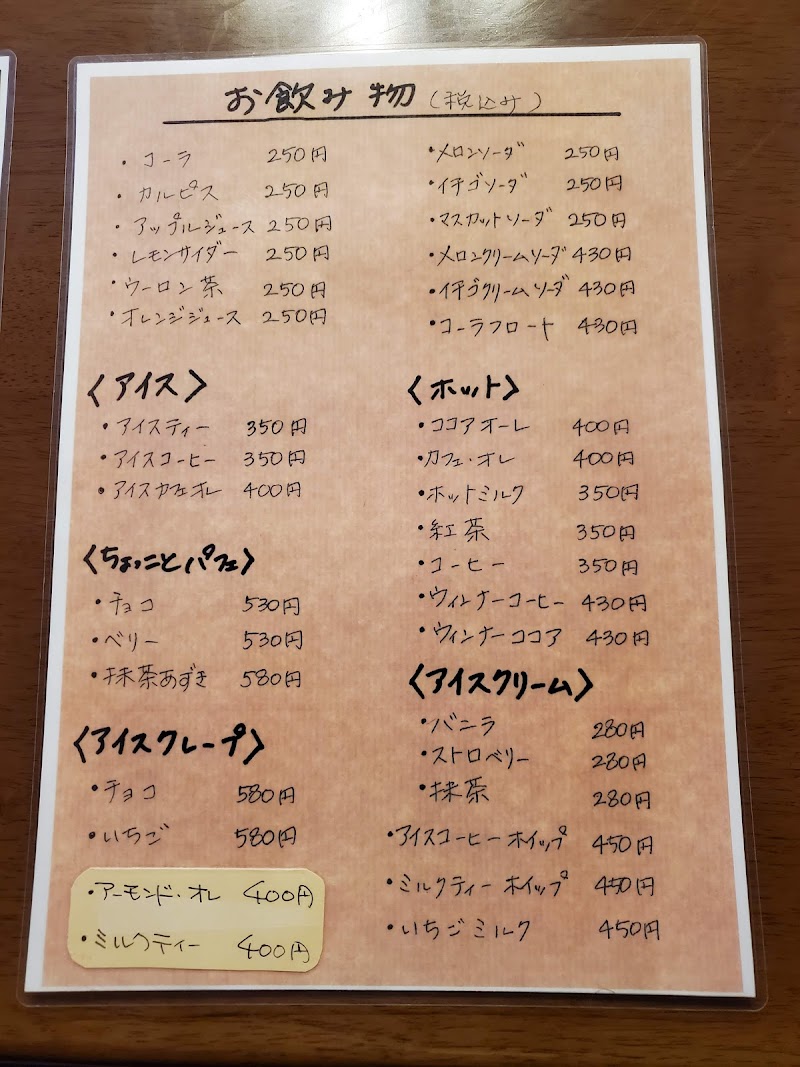 お飲み物(税込み)
・コーラ 250円
・カルピス 250円
・アップルジュース 250円
・レモンサイダー 250円
・ウーロン茶 250円
・オレンジジュース 250円
〈アイス〉
・アイスティー 350円
・アイスコーヒー 350円
・アイスカフェオレ 400円
〈ちょっことパフェ〉
・チョコ 530円
・ベリー 530円
・抹茶あずき 580円
〈アイスクレープ〉
・チョコ 580円
・いちご 580円
・アーモンド・オレ 400円
・ミルクティー 400円
・メロンソーダ 250円
・イチゴソーダ 250円
・マスカットソーダ 250円
・メロンクリームソーダ 430円
・イチゴクリームソーダ 430円
・コーラフロート 430円
〈ホット〉
・ココアオーレ 400円
・カフェ・オレ 400円
・ホットミルク 350円
・紅茶 350円
・コーヒー 350円
・ウィンナーコーヒー 430円
・ウィンナーココア 430円
〈アイスクリーム〉
・バニラ 280円
・ストロベリー 280円
・抹茶 280円
・アイスコーヒーホイップ 450円
・ミルクティーホイップ 450円
・いちごミルク 450円